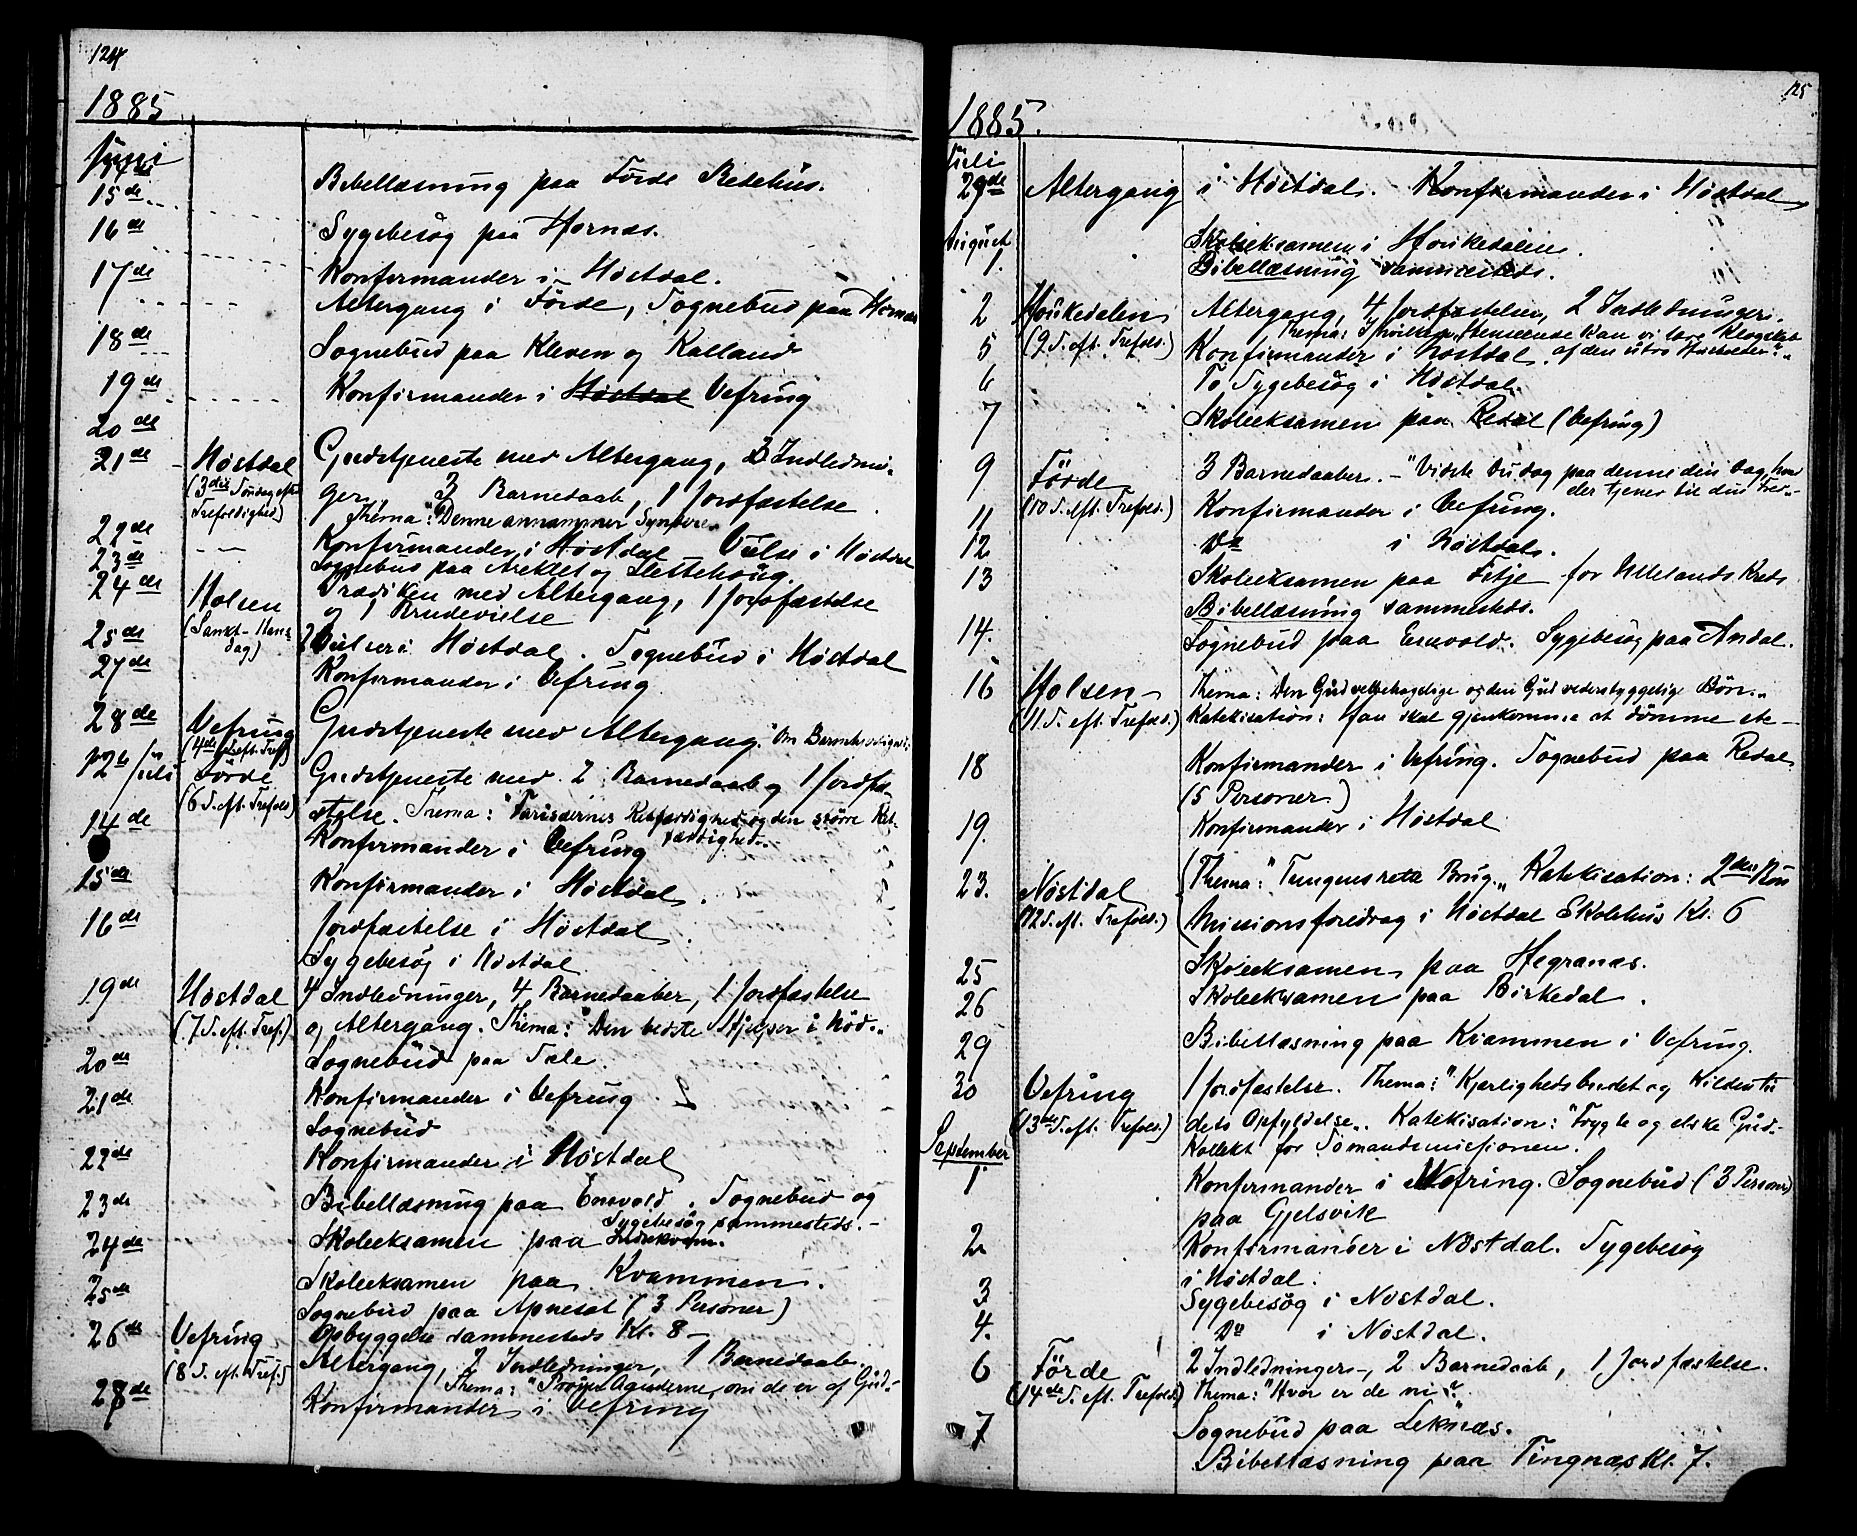 124
1885
Juni
14de Bibellæsning paa Förde Bedehus.
15de
16de Sygebesøg paa Hornæs.
17de Konfirmander i Høstdal.
Altergang i Förde, Sognebud paa Hornæs
18de Sognebud paa Kleven og Kalland
19de Konfirmander i Høstdal Vefring
20de
21de Høstdal Gudstjeneste med Altergang, 3 Indlednin-
(3die Søndag efter Trefoldighed) ger, 3 Barnedaab, 1 Jordfæstelse
Thema: "Denne annammer Syndere"
22de Konfirmander i Høstdal Vielse i Høstdal
23de Sognebud paa og Slettehoug.
24de Holsen Prædiken med Altergang, 1 Jordfæstelse
(Sankt-Hans dag) og 1 Brudevielse
25de 2 Vielser i Høstdal. Sognebud i Høstdal
27de Konfirmander i Vefring
28de Vefring Gudstjeneste med Altergang.
(4de S. eft. Tref.)
12te Juli Förde Gudstjeneste med 2 Barnedaab og 1 Jordfæ-
(6 S. eft. Trefold.) stelse. Thema: "Farisæernes Retfærdighed og den større Ret-
færdighed."
14de Konfirmander i Vefring
15de Konfirmander i Høstdal.
16de Jordfæstelse i Høstdal
Sygebesøg i Høstdal
19de Høstdal 4 Indledninger, 4 Barnedaaber, 1 Jordfæstelse
(7 S. eft. Tref.) og Altergang. Thema: "Den bedste Hjelper i Nød."
20de Sognebud paa Tale.
21de Konfirmander i Vefring
Sognebud
22de Konfirmander i Høstdal
23de Bibellæsning paa Engvold. Sognebud og
Sygebesøg sammesteds.-
24de Skoleeksamen paa Indrekvam.
25de Skoleeksamen paa Kvammen.
Sognebud paa Apneset (3 Personer)
Opbyggelse sammesteds Kl. 8-
26de Vefring Altergang, 2 Indledninger, 1 Barnedaab.
(8 S. eft. Tref.) Thema: "Prøver Aanderne, om de er af Gud."
28de Konfirmander i Vefring
125
1885.
Juli
29de Altergang i Høstdal. Konfirmander i Høstdal
August
1. Skoleeksamen i Houkedalen.
Bibellæsning sammesteds.
2 Houkedalen Altergang, 4 Jordfæstelser, 2 Indledninger.
(9 S. eft. Trefold.) Thema: I hvilken Henseende kan vi lære Klogskab
af den utro Husholder?"
5 Konfirmander i Høstdal
6 To Sygebesøg i Høstdal.
7 Skoleeksamen paa Redal (Vefring)
9 Förde 3 Barnedaaber. - "Vidste du dog paa denne din Dag, hvad
(10 S. eft. Trefold.) der tjener til din Fred"
11 Konfirmander i Vefring.
12 Do i Høstdal.
13 Skoleeksamen paa Fitje for Ullelands Kreds
Bibellæsning sammesteds.
14. Sognebud paa Engvold. Sygebesøg paa Andal.
16 Holsen- Thema: Den Gud velbehagelige og den Gud vederstyggelig Bøn."
(11 S. eft. Trefold.) Katekisation: Han skal gjenkomme at dømme etc-
18 Konfirmander i Vefring. Sognebud paa Redal
(5 Personer)
19. Konfirmander i Høstdal
23. Høstdal (Thema: "Tungens rette Brug." Katekisation: 2den Bøn
(12 S. eft. Trefold.) (Missionsforedrag i Høstdal Skolehus Kl. 6
25 Skoleeksamen paa Hegranæs.
26 Skoleeksamen paa Birkedal.
29 Bibellæsning paa Kvammen i Vefring.
30 Vefring 1 Jordfæstelse. Thema: "Kjærlighedsbudet og Kilden til
(13de S. eft. Trefold.) dets Opfyldelse." Katekisation: "Frygte og elske Gud."
Kollekt for Sømandsmissionen.
September
1 Konfirmander i Vefring. Sognebud (3 Personer)
paa Gjelsvik
2 Konfirmander i Høstdal. Sygebesøg
i Høstdal.
3 Sygebesøg i Nøstdal.
4. Do i Nøstdal.
6 Förde 2 Indledninger-, 2 Barnedaab, 1 Jordfæstelse.
(14de S. eft. Trefold.) Thema: "Hvor er de ni?"
7 Sognebud paa Leknæs.
Bibellæsning paa Tingnæs Kl. 7.